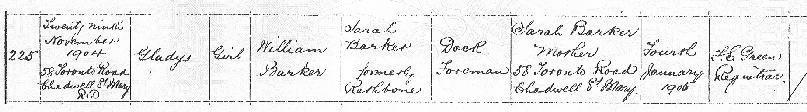 225
Twenty Ninth
November
1904
58 Toronto Road
Chadwell St Mary
R.D
Gladys
Girl
William
Barker
Sarah
Barker
formerly
Rathbone
Dock
Foreman
Sarah Barker
Mother
58 Toronto Road
Chadwell St Mary
Fourth
January
1905
Green
Registrar